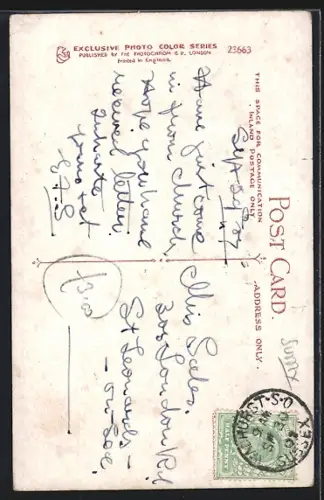 EXCLUSIVE PHOTO COLOR SERIES
PUBLISHED BY THE PHOTOCHROM Co. LD. LONDON
Printed in England.
23663
THIS SPACE FOR COMMUNICATION
INLAND POSTAGE ONLY.
POST CARD.
ADDRESS ONLY.
Sept 29 07
Have just come
in from church
Hope you have
received letter.
yours
Miss Eeles.
London Rd
St Leonards -
on Sea
Sussex
HALFPENNY
HURST·S.O.
SUSSEX